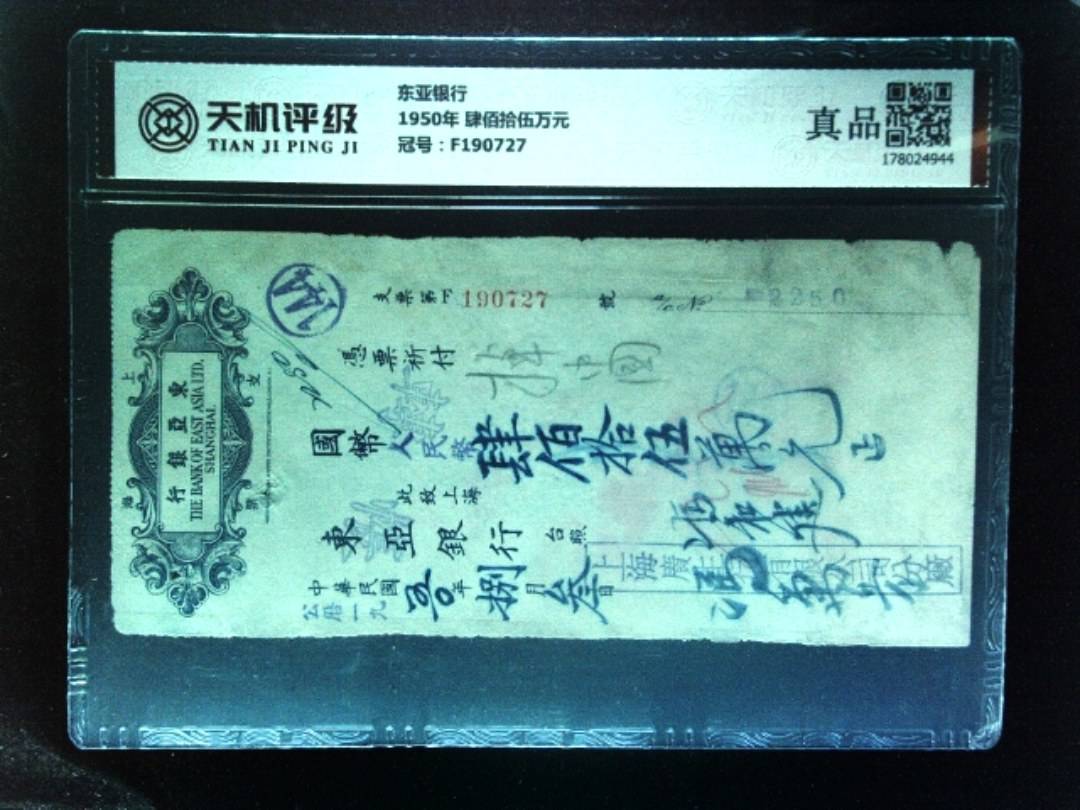 天机评级
TIAN JI PING JI
东亚银行
1950年 肆佰拾伍万元
冠号:F190727
真品
178024944
上海
東亞銀行
THE BANK OF EAST ASIA LTD.
SHANGHAI
支票
144
支票第F 190727 號
2250
憑票祈付
中國
國幣 人民幣 肆佰拾伍萬元正
此致上海
東亞銀行 台照
中華民國
公曆一九五〇年捌月叁日